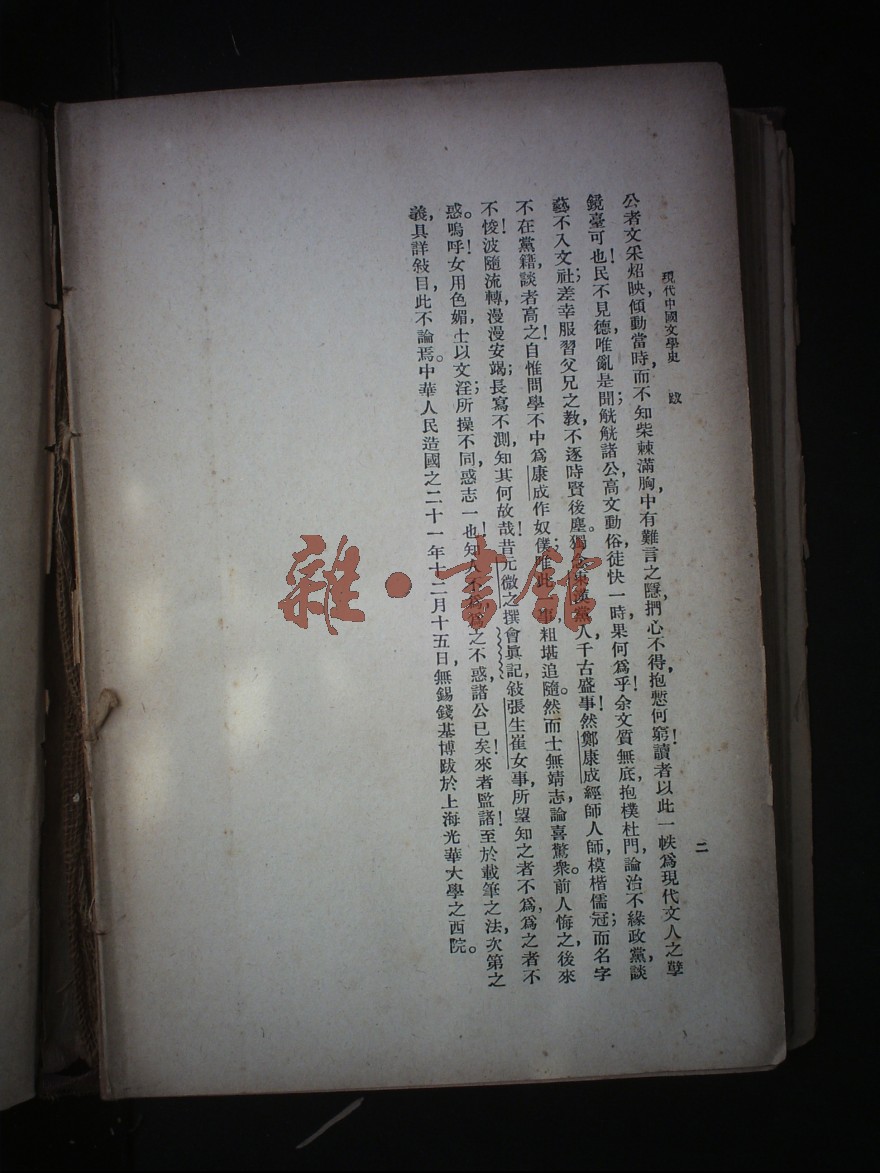 現代中國文學史　跋
二
公者文采炤映，傾動當時，而不知柴棘滿胸，中有難言之隱，捫心不得，抱慙何窮！讀者以此一帙爲現代文人之孽
鏡臺可也！民不見德，唯亂是聞；觥觥諸公，高文動俗，徒快一時，果何爲乎！余文質無底，抱樸杜門，論治不緣政黨，談
藝不入文社；差幸服習父兄之教，不逐時賢後塵。獨念東漢黨人，千古盛事！然鄭康成經師人師，模楷儒冠；而名字
不在黨籍，談者高之！自惟問學不中爲康成作奴僕；唯此一事，粗堪追隨。然而士無靖志，論喜驚衆。前人悔之，後來
不悛！波隨流轉，漫漫安竭；長寫不測，知其何故哉！昔元微之撰會眞記，敍張生崔女事，所望知之者不爲，爲之者不
惑。嗚呼！女用色媚，士以文淫；所操不同，惑志一也！知人不爲，爲之不惑，諸公已矣！來者監諸！至於載筆之法，次第之
義，具詳敍目，此不論焉。中華人民造國之二十一年十二月十五日，無錫錢基博跋於上海光華大學之西院。
雜·書館